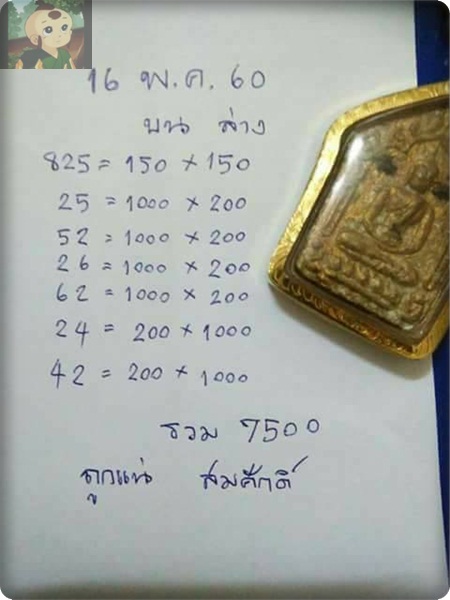 16 พ.ค. 60
บน ล่าง
825 = 150 × 150
25 = 1000 × 200
52 = 1000 × 200
26 = 1000 × 200
62 = 1000 × 200
24 = 200 × 1000
42 = 200 × 1000
รวม 7500
ถูกแน่ สมศักดิ์